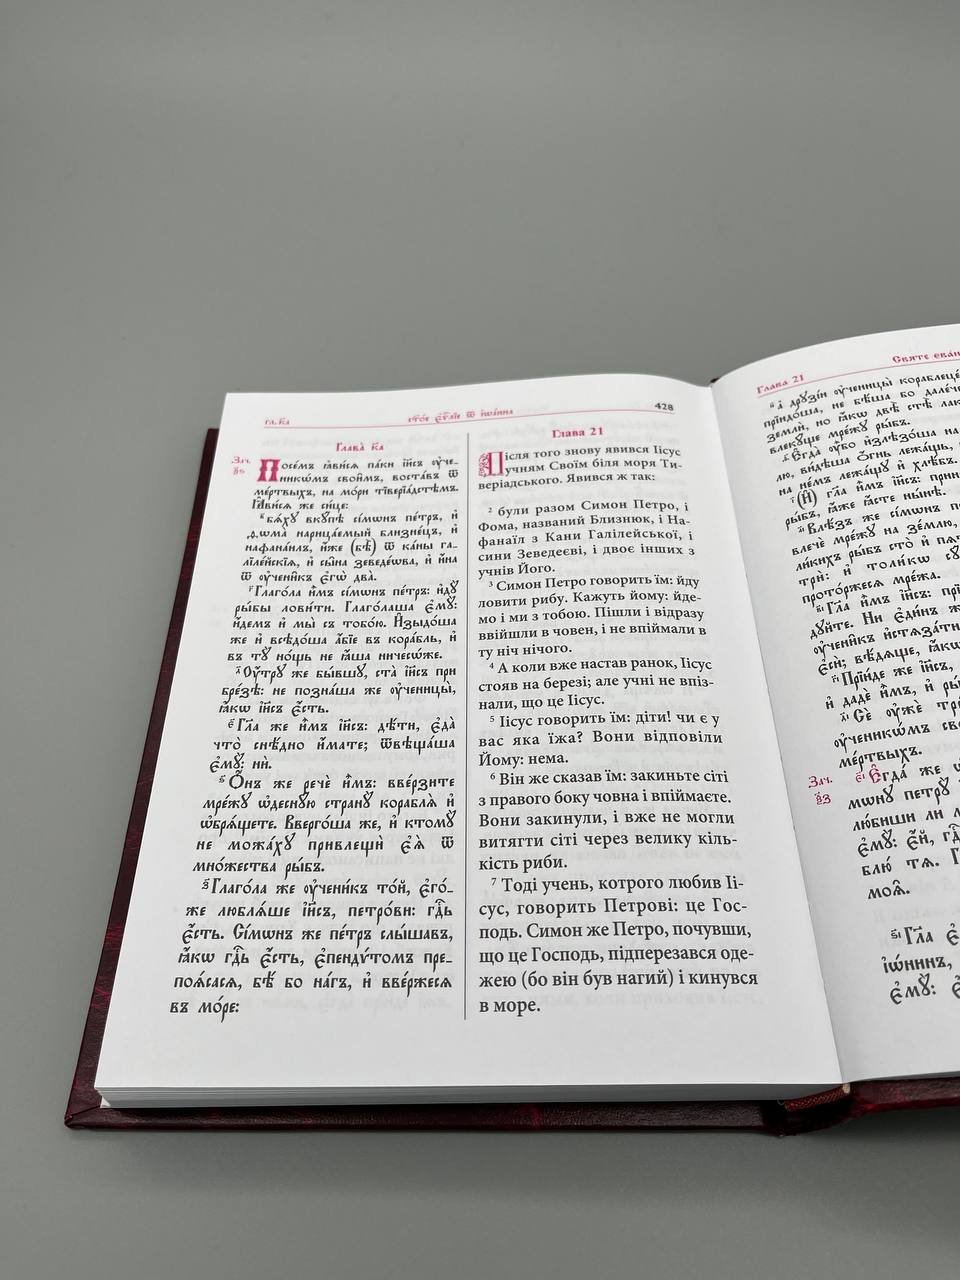 гл. к҃а
ст҃о́е є҆ѵⷢ҇лїе ѿ і҆ѡа́нна
428
Глава̀ к҃а
Зач.
Посе́мъ ꙗ҆ви́сѧ па́ки і҆и҃съ ᲂу҆че-
никѡ́мъ свои̑мъ, воста́въ ѿ
ме́ртвыхъ, на мо́ри тїверїа́дстѣмъ.
Ꙗ҆ви́сѧ же си́це:
в҃ Бѧ́хꙋ вкꙋ́пѣ сі́мѡнъ пе́тръ, и҆
ѳѡма̀ нарица́емый близне́цъ, и҆
наѳана́илъ, и҆́же (бѣ̀) ѿ ка́ны га-
лїле́йскїѧ, и҆ сы̑на зеведе́ѡва, и҆ и҆́на
ѿ ᲂу҆чени̑къ є҆гѡ̀ два̀.
г҃ Глаго́ла и҆̀мъ сі́мѡнъ пе́тръ: и҆дꙋ̀
ры́бы лови́ти. Глаго́лаша є҆мꙋ̀:
и҆́демъ и҆ мы̀ съ тобо́ю. И҆зыдо́ша
же и҆ всѣдо́ша а҆́бїе въ кора́бль, и҆
въ тꙋ̀ но́щь не ꙗ҆́ша ничесѡ́же.
д҃ Оу҆́трꙋ же бы́вшꙋ, ста̀ і҆и҃съ при
бре́зѣ: не позна́ша же ᲂу҆ченицы̀,
ꙗ҆́кѡ і҆и҃съ є҆́сть.
є҃ Гл҃а же и҆̀мъ і҆и҃съ: дѣ́ти, є҆да̀
что̀ снѣ́дно и҆́мате; ѿвѣща́ша
є҆мꙋ̀: нѝ.
ѕ҃ Ѻ҆́нъ же речѐ и҆̀мъ: вве́рзите
мре́жꙋ ѡ҆деснꙋ́ю странꙋ̀ кораблѧ̀ и҆
ѡ҆брѧ́щете. Вверго́ша же, и҆ ктомꙋ̀
не можа́хꙋ привлещѝ є҆ѧ̀ ѿ
мно́жества ры́бъ.
з҃ Глаго́ла же ᲂу҆чени́къ то́й, є҆го́-
же люблѧ́ше і҆и҃съ, петро́ви: гдⷭ҇ь
є҆́сть. Сі́мѡнъ же пе́тръ слы́шавъ,
ꙗ҆́кѡ гдⷭ҇ь є҆́сть, є҆пендѵ́томъ пре-
поѧ́сасѧ, бѣ́ бо на́гъ, и҆ вве́ржесѧ
въ мо́ре:
Глава 21
Після того знову явився Іісус
учням Своїм біля моря Ти-
веріадського. Явився ж так:
2 були разом Симон Петро, і
Фома, названий Близнюк, і На-
фанаїл з Кани Галілейської, і
сини Зеведеєві, і двоє інших з
учнів Його.
3 Симон Петро говорить їм: йду
ловити рибу. Кажуть йому: йде-
мо і ми з тобою. Пішли і відразу
ввійшли в човен, і не впіймали в
ту ніч нічого.
4 А коли вже настав ранок, Іісус
стояв на березі; але учні не впіз-
нали, що це Іісус.
5 Іісус говорить їм: діти! чи є у
вас яка їжа? Вони відповіли
Йому: нема.
6 Він же сказав їм: закиньте сіті
з правого боку човна і впіймаєте.
Вони закинули, і вже не могли
витягти сіті через велику кіль-
кість риби.
7 Тоді учень, котрого любив Іі-
сус, говорить Петрові: це Гос-
подь. Симон же Петро, почувши,
що це Господь, підперезався оде-
жею (бо він був нагий) і кинувся
в море.
Глава 21
Святе
и҃ А҆ дрꙋзі́и ᲂу҆ченицы̀
прїидо́ша, не бѣ́ша бо дале́че
землѝ, но ꙗ҆́кѡ двѣ̀ стѣ̀
влекꙋ́ще мре́жꙋ ры́бъ.
Є҆гда̀ ᲂу҆̀бо и҆злѣзо́ша на
лю̀, ви́дѣша ѻ҆́гнь лежа́щь,
на не́мъ лежа́щꙋ и҆ хлѣ́бъ.
(И҆) гл҃а и҆̀мъ і҆и҃съ:
ры́бъ, ꙗ҆̀же ꙗ҆́сте нн҃ѣ.
Влѣ́зъ же сі́мѡнъ
влечѐ мре́жꙋ на зе́млю,
ли́кихъ ры́бъ сто̀ и҆
трѝ: и҆ толи́кѡ
проторже́сѧ мре́жа.
Гл҃а и҆̀мъ і҆и҃съ:
Ни є҆ди́нъ же
ᲂу҆чени̑къ и҆стѧза́ти
є҆сѝ; вѣ́дѧще, ꙗ҆́кѡ
Прїи́де же і҆и҃съ,
и҆ дадѐ и҆̀мъ, и҆
Сѐ ᲂу҆жѐ
ᲂу҆ченикѡ́мъ
ме́ртвыхъ.
Зач.
Є҆гда́ же
пе́трꙋ
лю́биши ли
є҆мꙋ̀: є҆́й,
блю́ тѧ.
моѧ̑.
Гл҃а
і҆ѡ́нинъ,
є҆мꙋ̀: